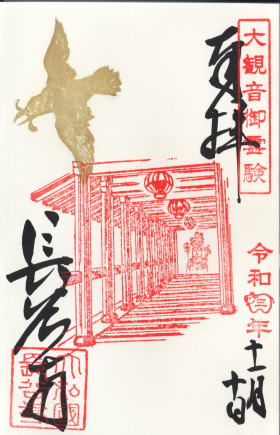 大観音御霊験
奉拝
令和
年
十一月
長谷寺